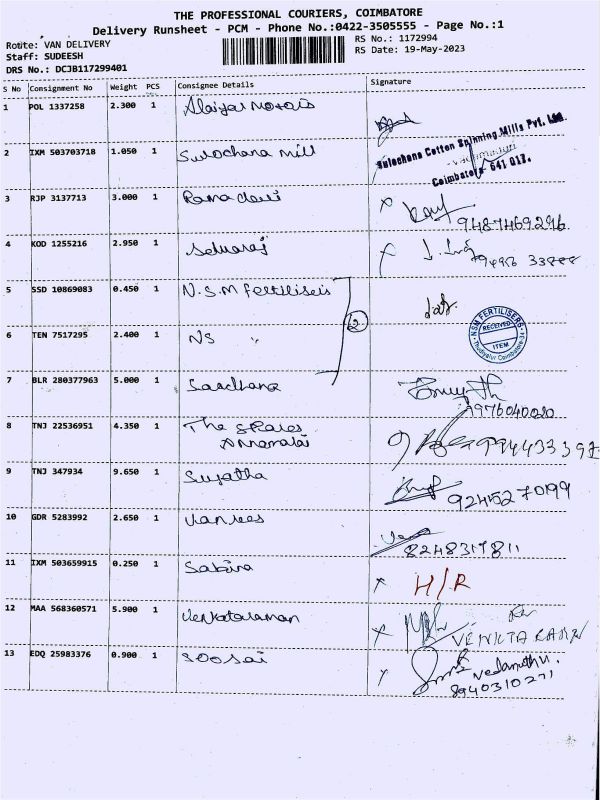 THE PROFESSIONAL COURIERS, COIMBATORE
Delivery Runsheet - PCM - Phone No.:0422-3505555 - Page No.:1
Route: VAN DELIVERY
RS No.: 1172994
Staff: SUDEESH
RS Date: 19-May-2023
DRS No.: DCJB117299401
S No Consignment No Weight PCS Consignee Details Signature
1 POL 1337258 2.300 1 Alaiyar Motors
2 IXM 503703718 1.050 1 Sulochana mill
Sulochana Cotton Spinning Mills Pvt. Ltd.
Coimbatore - 641 017.
3 RJP 3137713 3.000 1 Rama devi
9487469296
4 KOD 1255216 2.950 1 Selvaraj
5 SSD 10869083 0.450 1 N.S.M fertilisers
2
NSM FERTILISERS
RECEIVED
ITEM
6 TEN 7517295 2.400 1 NS "
7 BLR 280377963 5.000 1 Saadhana
8 TNJ 22536951 4.350 1 The
Annamalai
9 TNJ 347934 9.650 1 Sujatha
9245270199
10 GDR 5283992 2.650 1
8248317811
11 IXM 503659915 0.250 1 Sabira
H/R
12 MAA 568360571 5.900 1 Venkataraman
13 EDQ 25983376 0.900 1 Soosai
8940310271